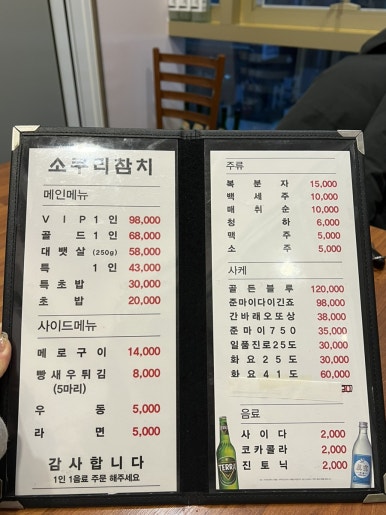 소루리참치
메인메뉴
VIP 1인 98,000
골드 1인 68,000
대뱃살 (250g) 58,000
특 1인 43,000
특초밥 30,000
초밥 20,000
사이드메뉴
메로구이 14,000
빵새우튀김 8,000
(5마리)
우동 5,000
라면 5,000
감사합니다
1인 1음료 주문 해주세요
주류
복분자 15,000
백세주 10,000
매취순 10,000
청하 6,000
맥주 5,000
소주 5,000
사케
골든블루 120,000
준마이다이긴죠 98,000
간바래오또상 38,000
준마이750 35,000
일품진로25도 30,000
화요25도 30,000
화요41도 60,000
음료
사이다 2,000
코카콜라 2,000
진토닉 2,000
TERRA